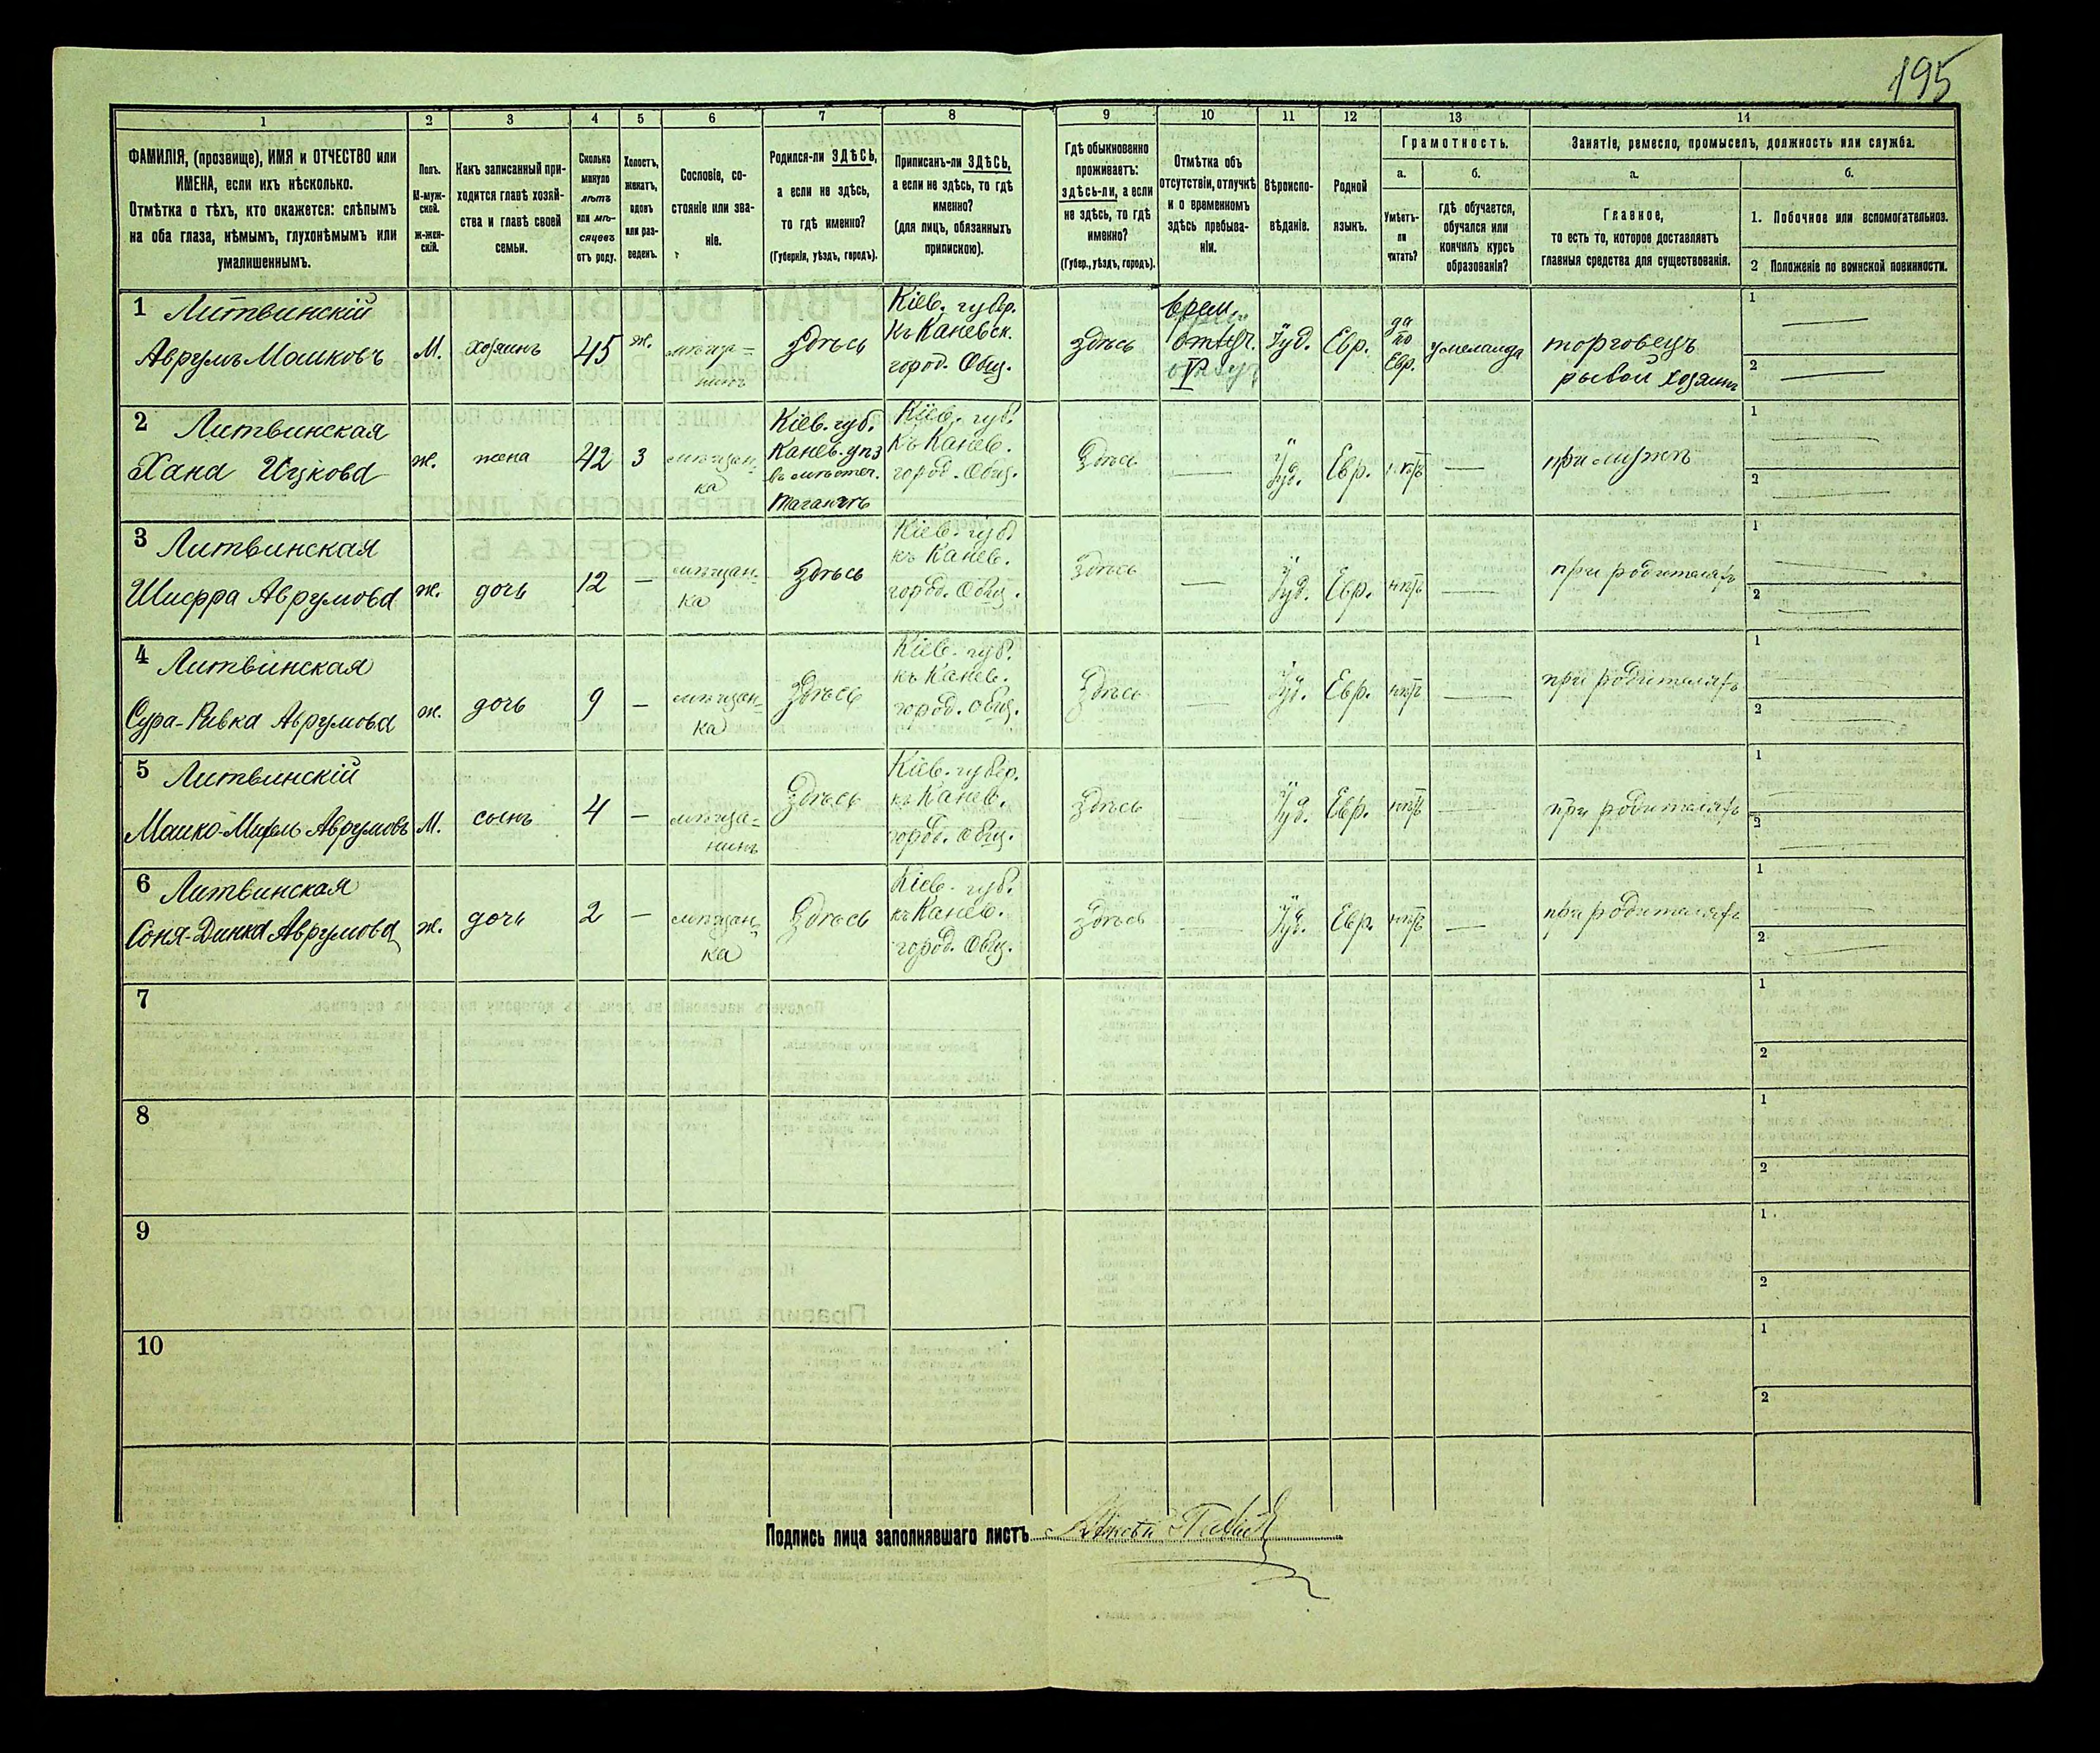 195
1
2
3
4
5
6
7
8
9
10
11
12
13
14
ФАМИЛІЯ, (прозвище), ИМЯ и ОТЧЕСТВО или
ИМЕНА, если ихъ нѣсколько.
Отмѣтка о тѣхъ, кто окажется: слѣпымъ
на оба глаза, нѣмымъ, глухонѣмымъ или
умалишеннымъ.
Полъ.
М-муж-
ской.
ж-жен-
скій.
Какъ записанный при-
ходится главѣ хозяй-
ства и главѣ своей
семьи.
Сколько
минуло
лѣтъ
или мѣ-
сяцевъ
отъ роду.
Холостъ,
женатъ,
вдовъ
или раз-
веденъ.
Сословіе, со-
стояніе или зва-
ніе.
Родился-ли ЗДѢСЬ,
а если не здѣсь,
то гдѣ именно?
(Губернія, уѣздъ, городъ).
Приписанъ-ли ЗДѢСЬ,
а если не здѣсь, то гдѣ
именно?
(для лицъ, обязанныхъ
припискою).
Гдѣ обыкновенно
проживаетъ:
здѣсь-ли, а если
не здѣсь, то гдѣ
именно?
(Губер., уѣздъ, городъ).
Отмѣтка объ
отсутствіи, отлучкѣ
и о временномъ
здѣсь пребыва-
ніи.
Вѣроиспо-
вѣданіе.
Родной
языкъ.
Грамотность.
а.
Умѣетъ-
ли
читать?
б.
гдѣ обучается,
обучался или
кончилъ курсъ
образованія?
Занятіе, ремесло, промыселъ, должность или служба.
а.
Главное,
то есть то, которое доставляетъ
главныя средства для существованія.
б.
1. Побочное или вспомогательное.
2 Положеніе по воинской повинности.
1 Литвинскій
Аврумъ Мошковъ
М.
хозяинъ
45
ж.
мѣща-
нинъ
Здѣсь
Кіев. губер.
къ Каневск.
город. Общ.
Здѣсь
врем.
отлуч.
Іуд.
Евр.
да
по
Евр.
у меламда
торговецъ
рыбой хозяинъ
1
2
2 Литвинская
Хана Ицкова
ж.
жена
42
3
мѣщан-
ка
Кіев. губ.
Канев. уѣз
въ мѣстеч.
Таганчѣ
Кіев. губ.
къ Канев.
город. Общ.
Здѣсь
Іуд.
Евр.
нѣтъ
при мужѣ
1
2
3 Литвинская
Шифра Аврумова
ж.
дочь
12
мѣщан-
ка
Здѣсь
Кіев. губ
къ Канев.
город. Общ.
Здѣсь
Іуд.
Евр.
нѣтъ
при родителяхъ
1
2
4 Литвинская
Сура-Ривка Аврумова
ж.
дочь
9
мѣщан-
ка
Здѣсь
Кіев. губ.
къ Канев.
город. общ.
Здѣсь
Іуд.
Евр.
нѣтъ
при родителяхъ
1
2
5 Литвинскій
Мошко-Михель Аврумовъ
М.
сынъ
4
мѣща-
нинъ
Здѣсь
Кіев. губер.
къ Канев.
город. общ.
Здѣсь
Іуд.
Евр.
нѣтъ
при родителяхъ
1
2
6 Литвинская
Соня-Динка Аврумова
ж.
дочь
2
мѣщан-
ка
Здѣсь
Кіев. губ.
къ Канев.
город. Общ.
Здѣсь
Іуд.
Евр.
нѣтъ
при родителяхъ
1
2
7
1
2
8
1
2
9
1
2
10
1
2
Подпись лица заполнявшаго листъ